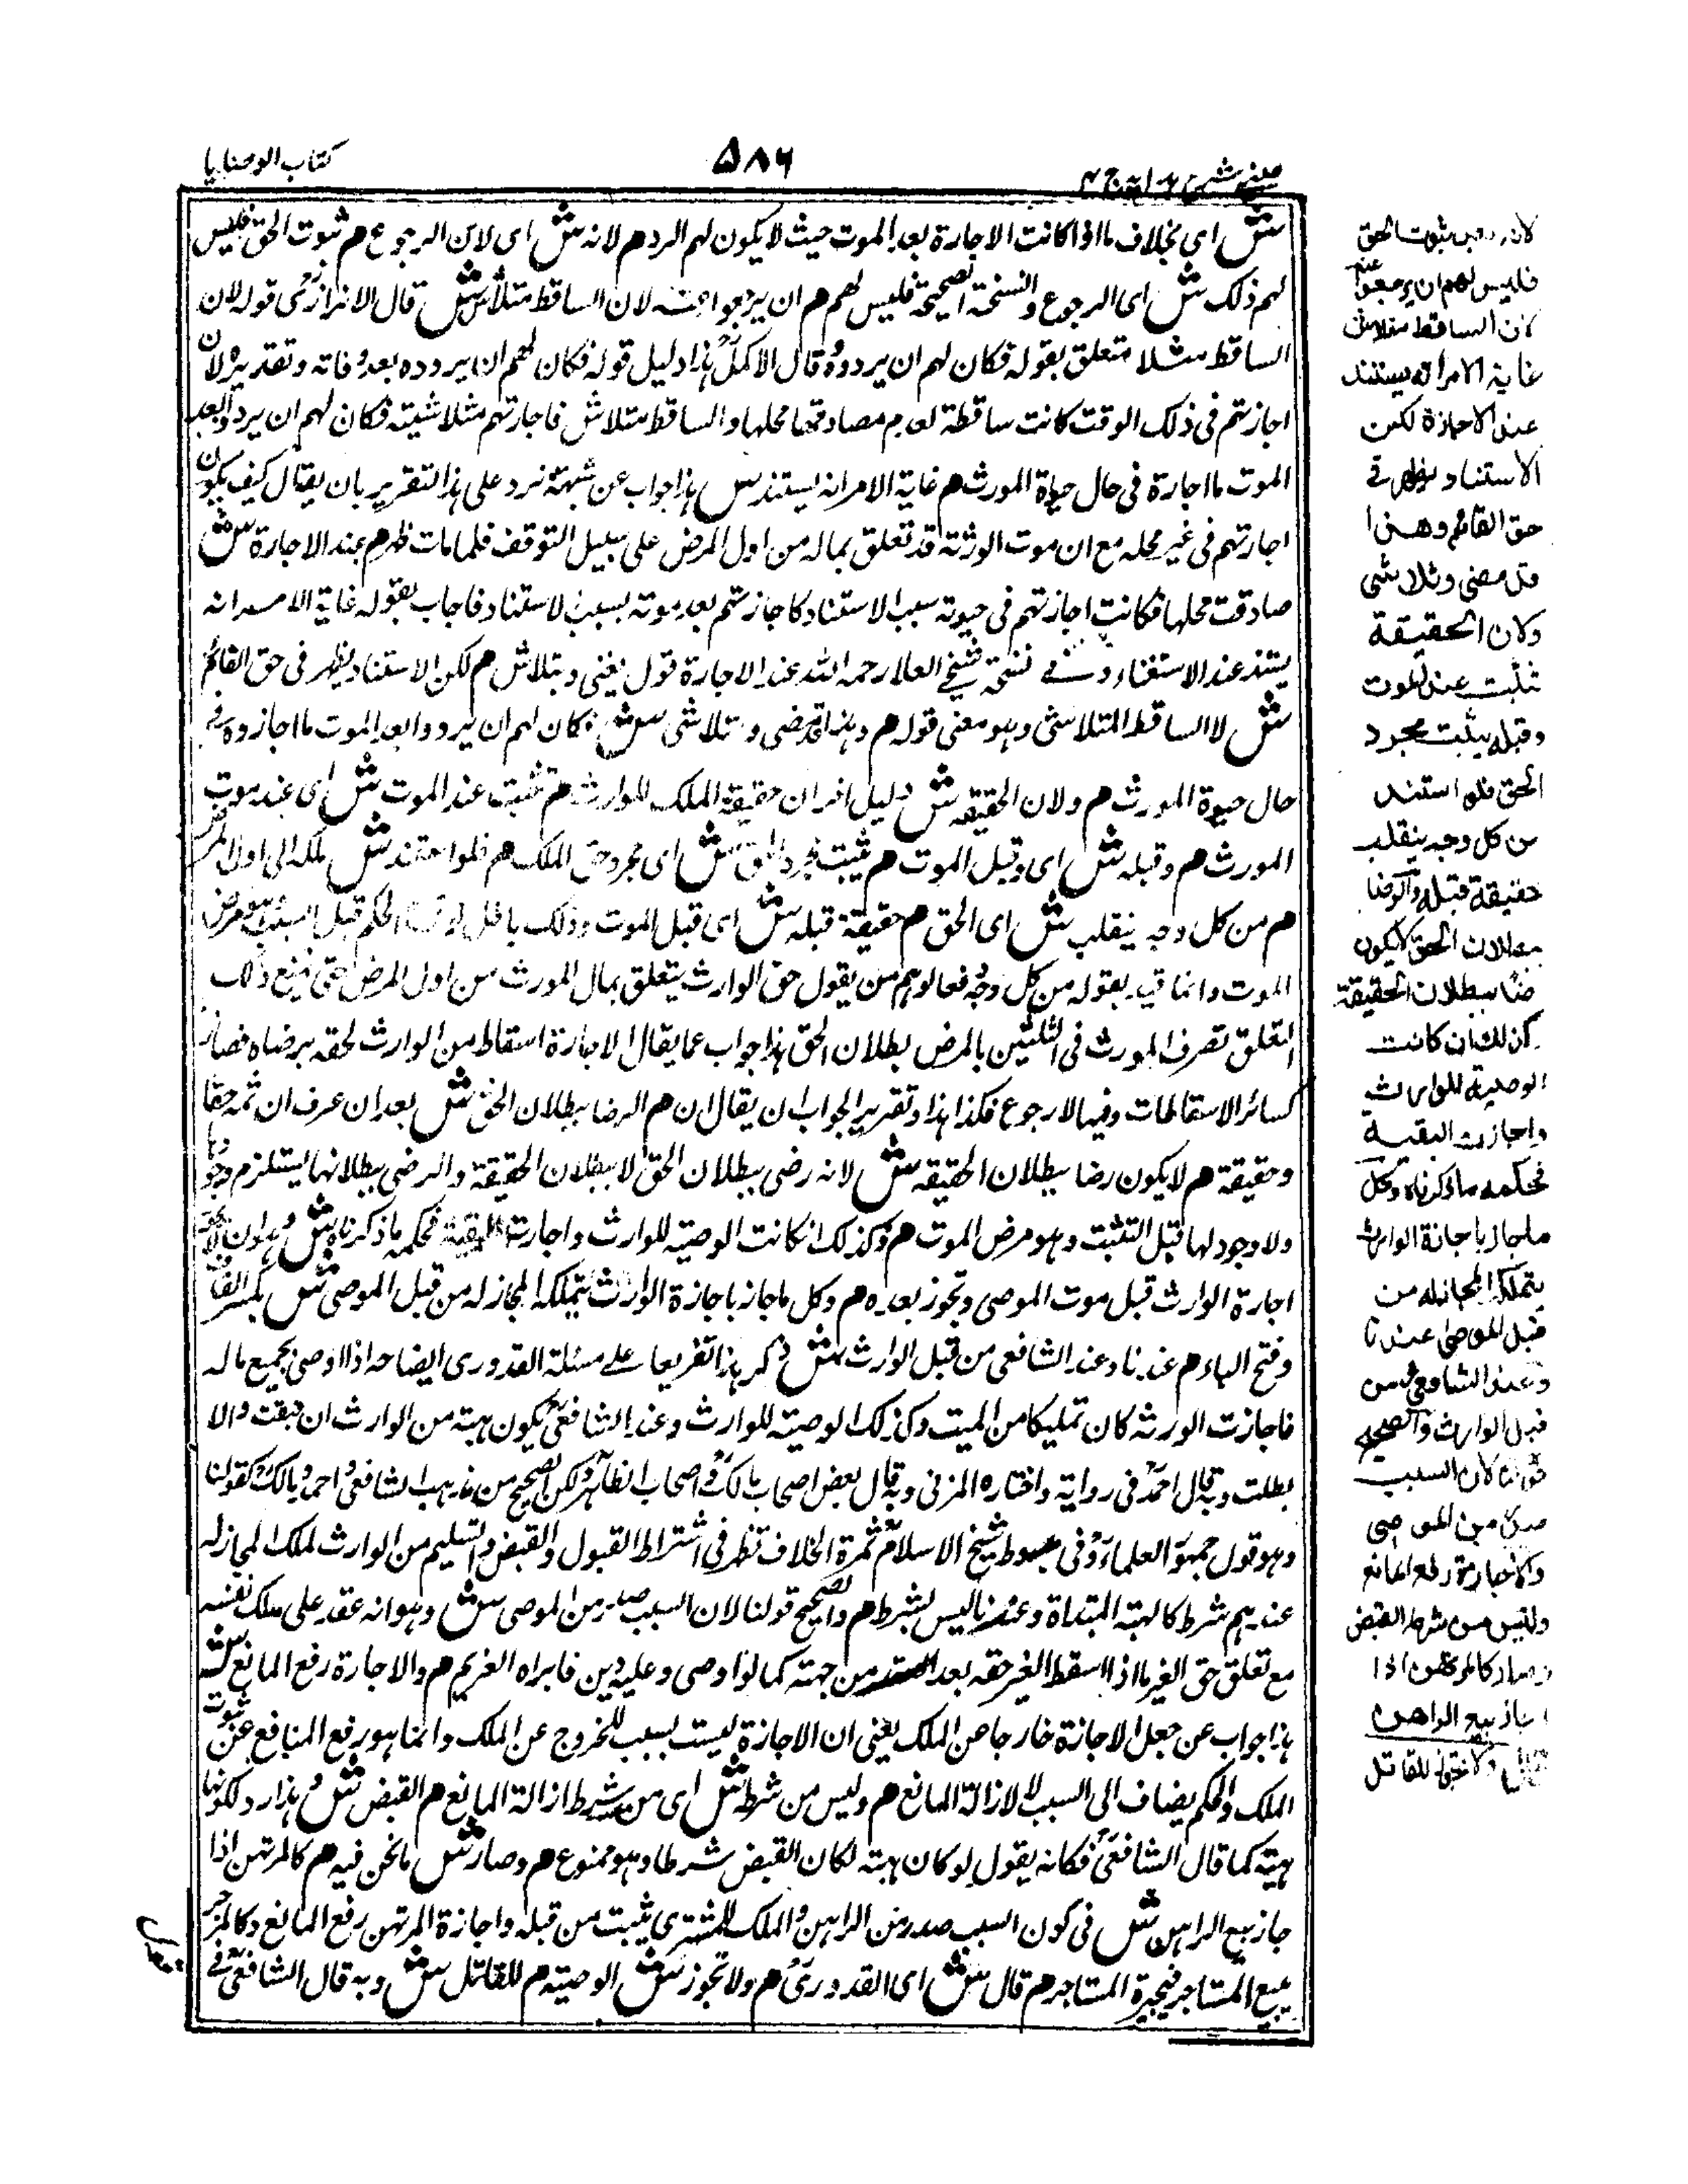 كتاب الوصايا
۵۸۶
عينى شرح هداية ج ۴
ش اى بخلاف ما اذا كانت الاجازة بعد الموت حيث لا يكون لهم الرد م لانه ش اى لان الرجوع م ثبوت الحق فليس
لهم ذلك ش اى الرجوع والنسخة الصحيحة فليس لهم م ان يرجعوا عنه لان الساقط متلاش ش قال الاترازى قوله لان
الساقط متلاش متعلق بقوله فكان لهم ان يردوه وقال الاكمل هذا دليل قوله فكان لهم ان يردوه بعد وفاته وتقديره لان
اجازتهم فى ذلك الوقت كانت ساقطة لعدم مصادفتها محلها والساقط متلاش فاجازتهم متلاشية فكان لهم ان يردوا بعد
الموت ما اجازوه فى حال حيوة المورث م غاية الامر انه يستند ش هذا جواب عن شبهة ترد على هذا التقرير بان يقال كيف يكون
اجازتهم فى غير محله مع ان موت الورثة قد تعلق بماله من اول المرض على سبيل التوقف فلما مات ظهر م عند الاجازة ش
صادفت محلها فكانت اجازتهم فى حيوته سبب الاستناد كاجازتهم بعد موته بسبب الاستناد فاجاب بقوله غاية الامر انه
يستند عند الاستغناء وفى نسخة شيخ العلا رحمه الله عند الاجازة قول يغنى ويتلاش م لكن الاستناد يظهر فى حق القائم
ش لا الساقط المتلاشى وهو معنى قوله م وهذا قد مضى وتلاشى ش فكان لهم ان يردوا بعد الموت ما اجازوه فى
حال حيوة المورث م ولان الحقيقة ش دليل اخر ان حقيقة الملك للوارث م تثبت عند الموت ش اى عند موت
المورث م وقبله ش اى وقبل الموت م يثبت مجرد الحق ش اى مجرد حق الملك م فلو استند ش ملكه الى اول المرض
م من كل وجه ينقلب ش اى الحق م حقيقة قبله ش اى قبل الموت وذلك باطل لوقوع الحكم قبل السبب وهو مرض
الموت وانما قيد بقوله من كل وجه دفعا لوهم من يقول حق الوارث يتعلق بمال المورث من اول المرض حتى يمنع ذلك
التعلق تصرف المورث فى الثلثين بالمرض بطلان الحق هذا جواب عما يقال الاجازة اسقاط من الوارث لحقه برضاه فصار
كسائر الاسقاطات وفيها لا رجوع فكذا هذا وتقرير الجواب ان يقال ان م الرضا ببطلان الحق ش بعد ان عرف ان ثمه حقا
وحقيقة م لا يكون رضا ببطلان الحقيقة ش لانه رضى ببطلان الحق لا ببطلان الحقيقة والرضى ببطلانها يستلزم وجودها
ولا وجود لها قبل التثبت وهو مرض الموت م وكذلك ان كانت الوصية للوارث واجازت البقية فحكمه ما ذكرناه ش وهو ان لا يجوز
اجازة الوارث قبل موت الموصى وتجوز بعده م وكل ما جاز باجازة الوارث يتملكه المجاز له من قبل الموصى ش بكسر القاف
وفتح الباء م عندنا وعند الشافعى من قبل الوارث ش ذكر هذا تفريعا على مسئلة القدورى ايضاحه اذا اوصى بجميع ماله
فاجازت الورثة كان تمليكا من الميت وكذلك الوصية للوارث وعند الشافعى يكون هبة من الوارث ان قبضت والا
بطلت وبه قال احمد فى رواية واختاره المزنى وبه قال بعض اصحاب مالك واصحاب الظاهر ولكن الصحيح من مذهب الشافعى واحمد ومالك كقولنا
وهو قول جمهور العلماء وفى مبسوط شيخ الاسلام ثمرة الخلاف تظهر فى اشتراط القبول والقبض والتسليم من الوارث لملك المجاز له
عندهم شرط كالهبة المبتداة وعندنا ليس بشرط م والصحيح قولنا لان السبب صدر من الموصى ش وهو انه عقد على ملك نفسه
مع تعلق حق الغير ما اذا اسقط الغير حقه بعد العقد من جهته كما لو اوصى وعليه دين فابراه الغريم م والاجازة رفع المانع ش
هذا جواب عن جعل الاجازة خارجا عن الملك يعنى ان الاجازة ليست بسبب للخروج عن الملك وانما هو رفع المنافع عن ثبوت
الملك والحكم يضاف الى السبب لا لازالة المانع م وليس من شرطه ش اى من شرط ازالة المانع م القبض ش وهذا رد لكونها
هبة كما قال الشافعى فكانه يقول لو كان هبة لكان القبض شرطا وهو ممنوع م وصار ش ما نحن فيه م كالمرتهن اذا
جاز بيع الراهن ش فى كون السبب صدر من الراهن والملك للمشترى يثبت من قبله واجازة المرتهن رفع المانع وكالمؤجر
يبيع المستاجر فيجيزه المستاجر م قال ش اى القدورى م ولا تجوز ش الوصية م للقاتل ش وبه قال الشافعى فى
لانه بعد ثبوت الحق
فليس لهم ان يرجعوا عنه
لان الساقط متلاش
غاية الامر انه يستند
عند الاجازة لكن
الاستناد يظهر فى
حق القائم وهذا
قد مضى وتلاشى
ولان الحقيقة
تثبت عند الموت
وقبله يثبت مجرد
الحق فلو استند
من كل وجه ينقلب
حقيقة قبله والرضا
ببطلان الحق لا يكون
رضا ببطلان الحقيقة
وكذلك ان كانت
الوصية للوارث
واجازت البقية
فحكمه ما ذكرناه وكل
ما جاز باجازة الوارث
يتملكه المجاز له من
قبل الموصى عندنا
وعند الشافعى من
قبل الوارث والصحيح
قولنا لان السبب
صدر من الموصى
والاجازة رفع المانع
وليس من شرطه القبض
وصار كالمرتهن اذا
اجاز بيع الراهن
قال ولا تجوز للقاتل